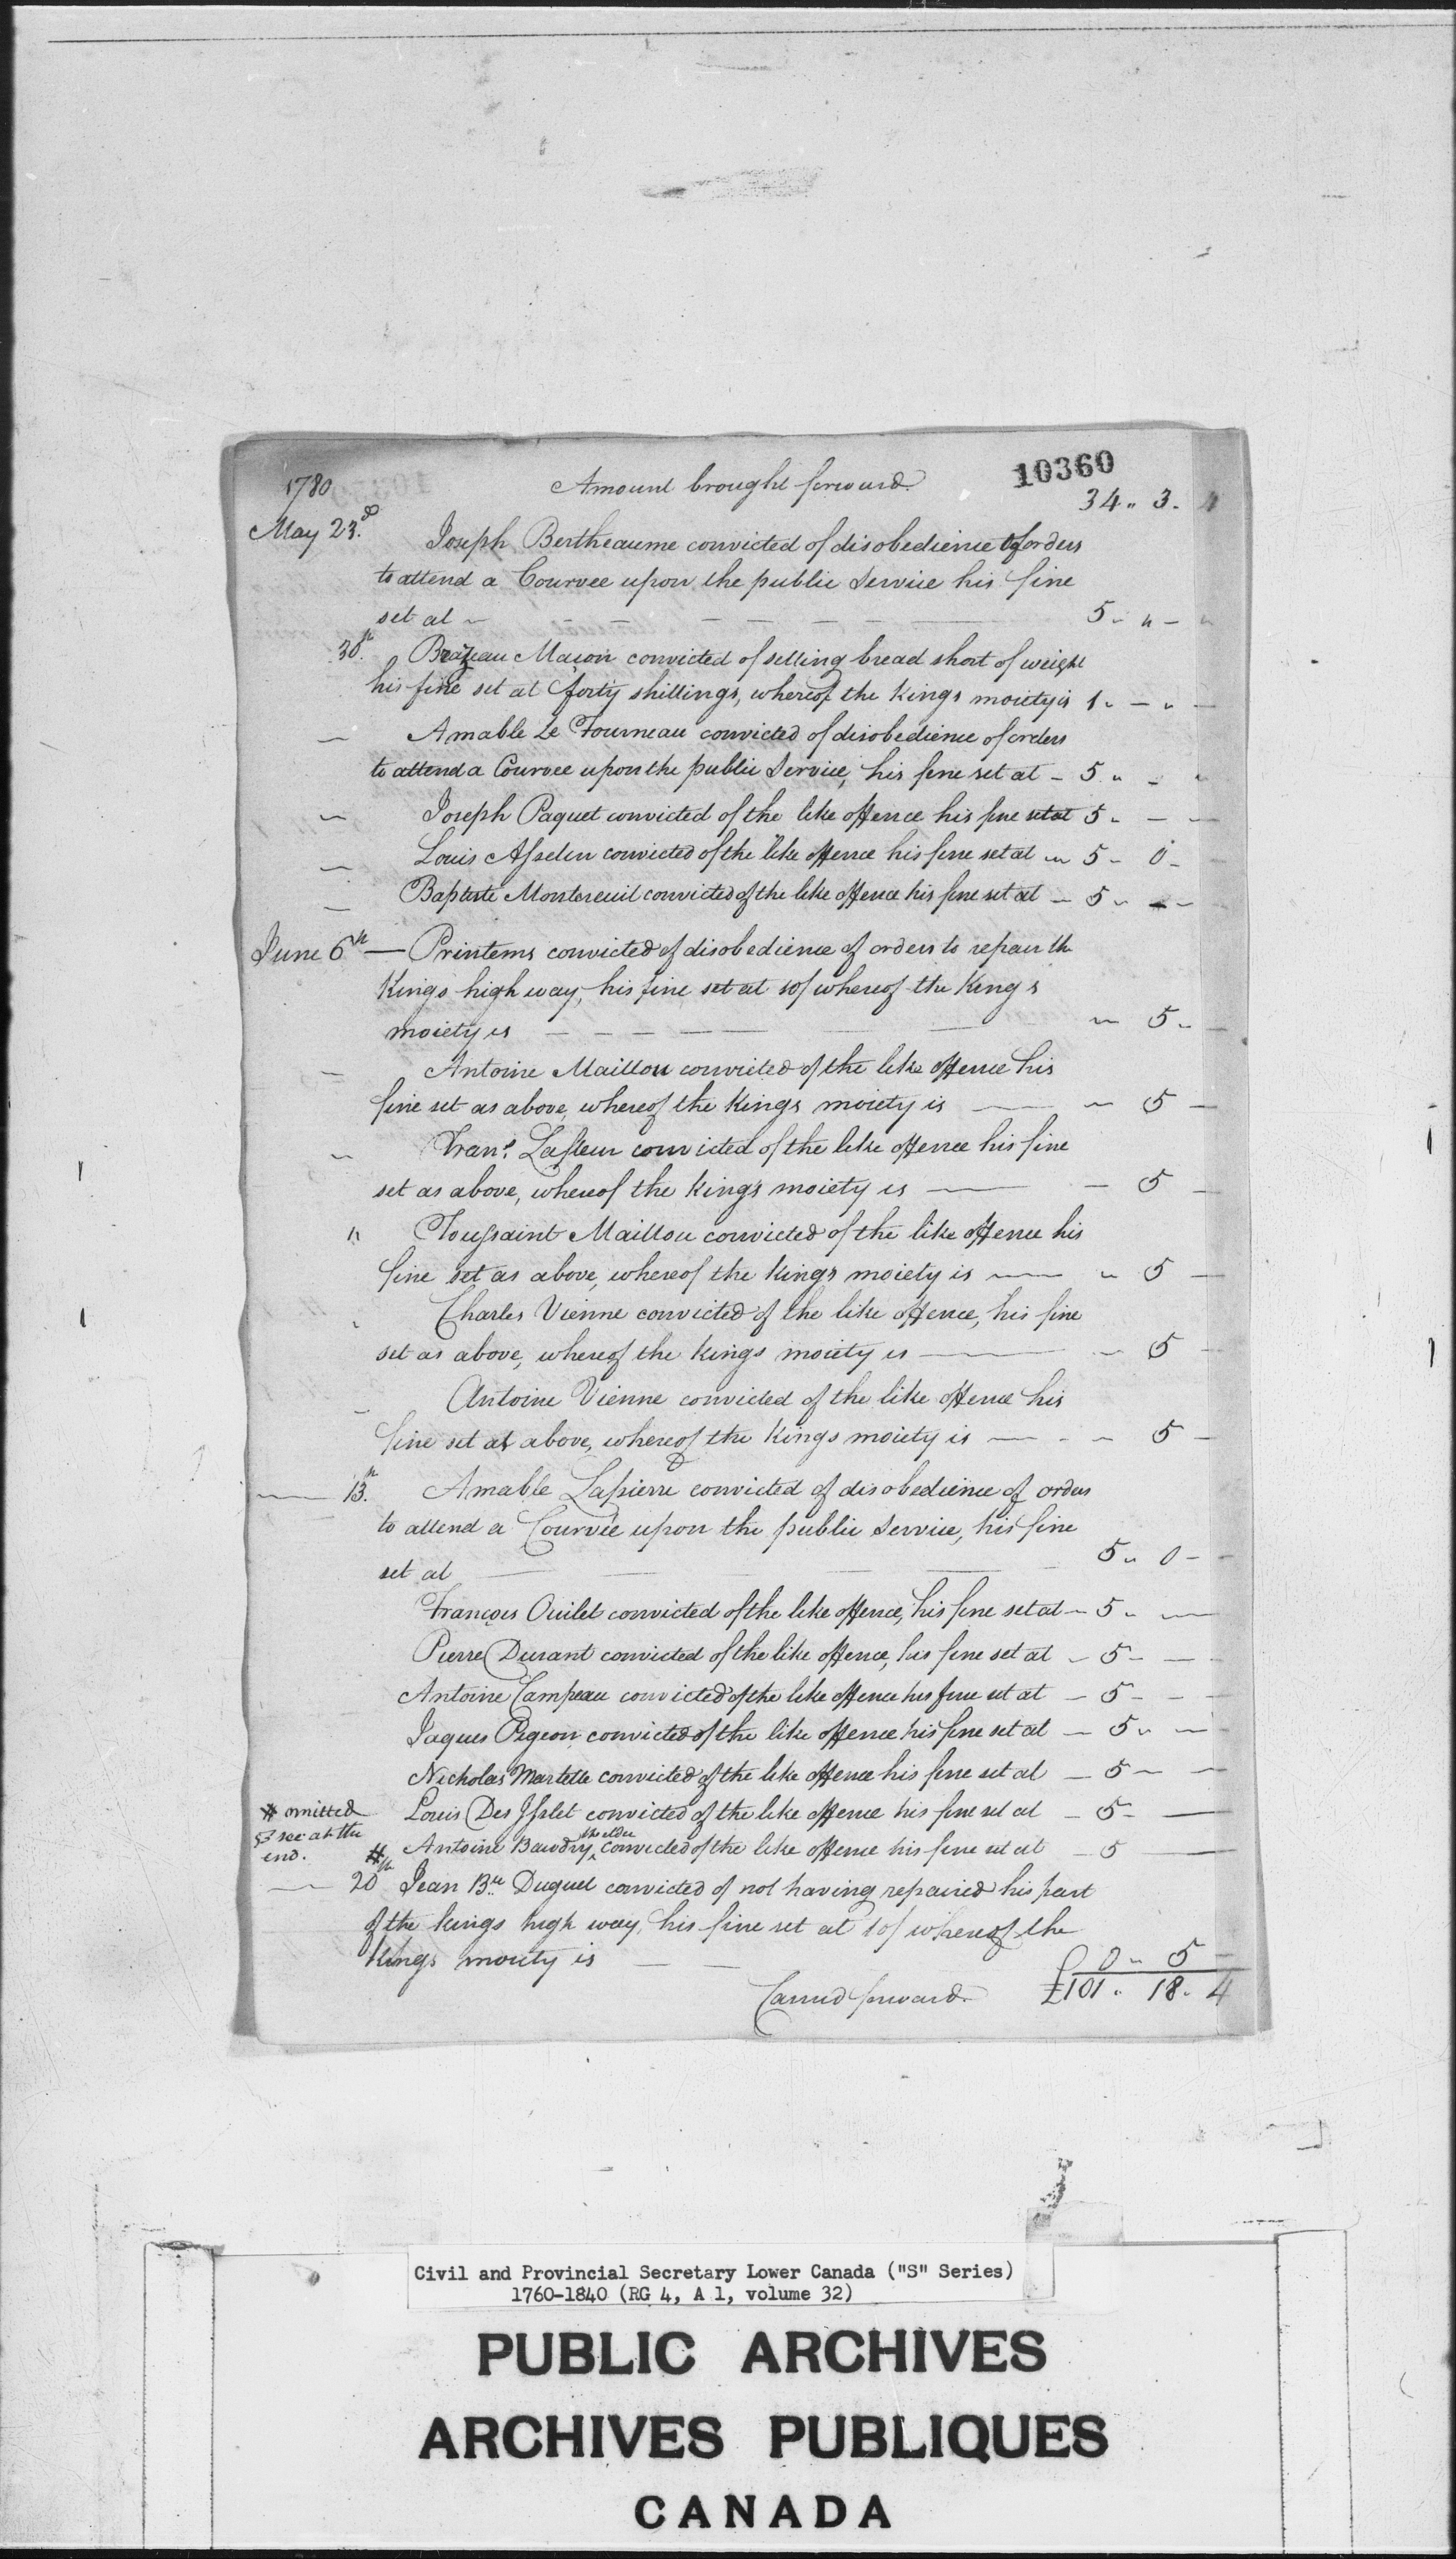 10360
1780 Amount brought forward 34 " 3 - 4
May 23.d Joseph Bertheaume convicted of disobedience of orders
to attend a Courvee upon the public Service his fine
set at ~ — — — — — — 5 - " - "
30.th Brazeau Maçon convicted of selling bread short of weight
his fine set at forty shillings, whereof the Kings moiety is 1 " — " —
— Amable Le Tourneau convicted of disobedience of orders
to attend a Courvee upon the public Service, his fine set at - 5 " - "
~ Joseph Paquet convicted of the like offence his fine set at 5 - — —
— Louis Asselin convicted of the like offence his fine set at ~ 5 - 0 -
— Baptiste Montereuil convicted of the like offence his fine set at — 5 - — -
June 6th — Printems convicted of disobedience of orders to repair the
Kings high way, his fine set at 10/ whereof the King's
moiety is — — — — — — ~ 5 " —
— Antoine Maillou convicted of the like offence his
fine set as above, whereof the Kings moiety is — ~ 5 —
~ Frans. Lafleur convicted of the like offence his fine
set as above, whereof the King's moiety is — — 5 —
" Toussaint Maillou convicted of the like offence his
fine set as above, whereof the King's moiety is — ~ 5 —
Charles Vienne convicted of the like offence, his fine
set as above, whereof the Kings moiety is — ~ 5 -
- Antoine Vienne convicted of the like offence his
fine set as above, whereof the Kings moiety is — - ~ 5 —
— 13.th Amable Lapierre convicted of disobedience of orders
to attend a Courvée upon the public Service, his fine
set at — — — — — 5 " 0 - -
François Ouilet convicted of the like offence, his fine set at ~ 5 " —
Pierre Durant convicted of the like offence, his fine set at ~ 5 - — -
Antoine Campeau convicted of the like offence his fine set at — 5 - - -
Jaques Pigeon convicted of the like offence his fine set at — 5 " — -
Nicholas Martelle convicted of the like offence his fine set at — 5 ~ —
# omitted Louis Des Isslet convicted of the like offence his fine set at — 5 - —
& see at the
end. # Antoine Baudry the elder convicted of the like offence his fine set at — 5 —
— 20th Jean Bte. Duquet convicted of not having repaired his part
of the kings high way, his fine set at 10/ whereof the
Kings moiety is — — 0 ~ 5 —
Carried forward £101 " 18 " 4
Civil and Provincial Secretary Lower Canada ("S" Series)
1760-1840 (RG 4, A 1, volume 32)
PUBLIC ARCHIVES
ARCHIVES PUBLIQUES
CANADA